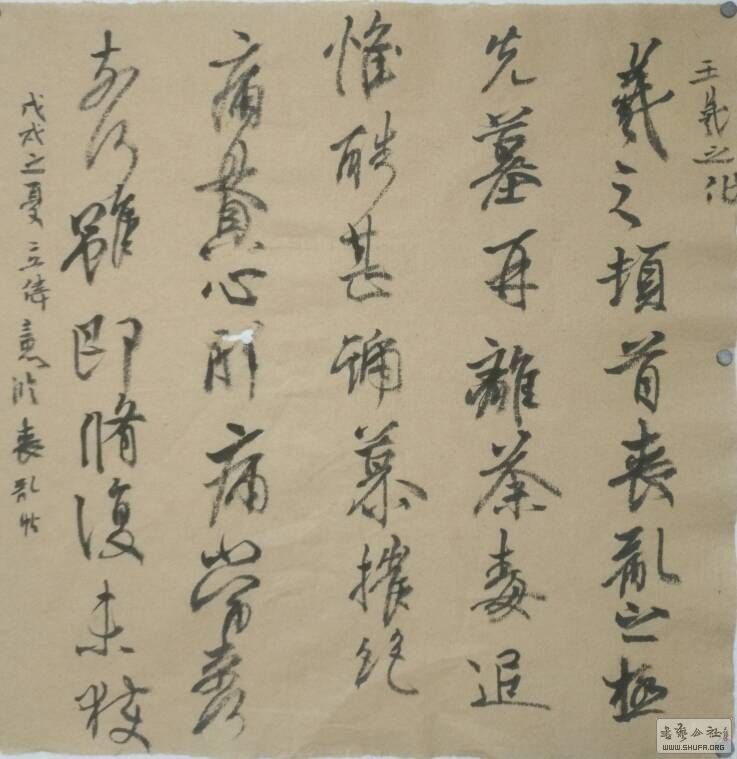 王羲之
羲之頓首喪亂之極
先墓再離荼毒追
惟酷甚號慕摧絕
痛貫心肝痛當奈何
奈何雖即脩復未獲
戊戌之夏立偉意臨喪亂帖
WWW.SHUFA.ORG